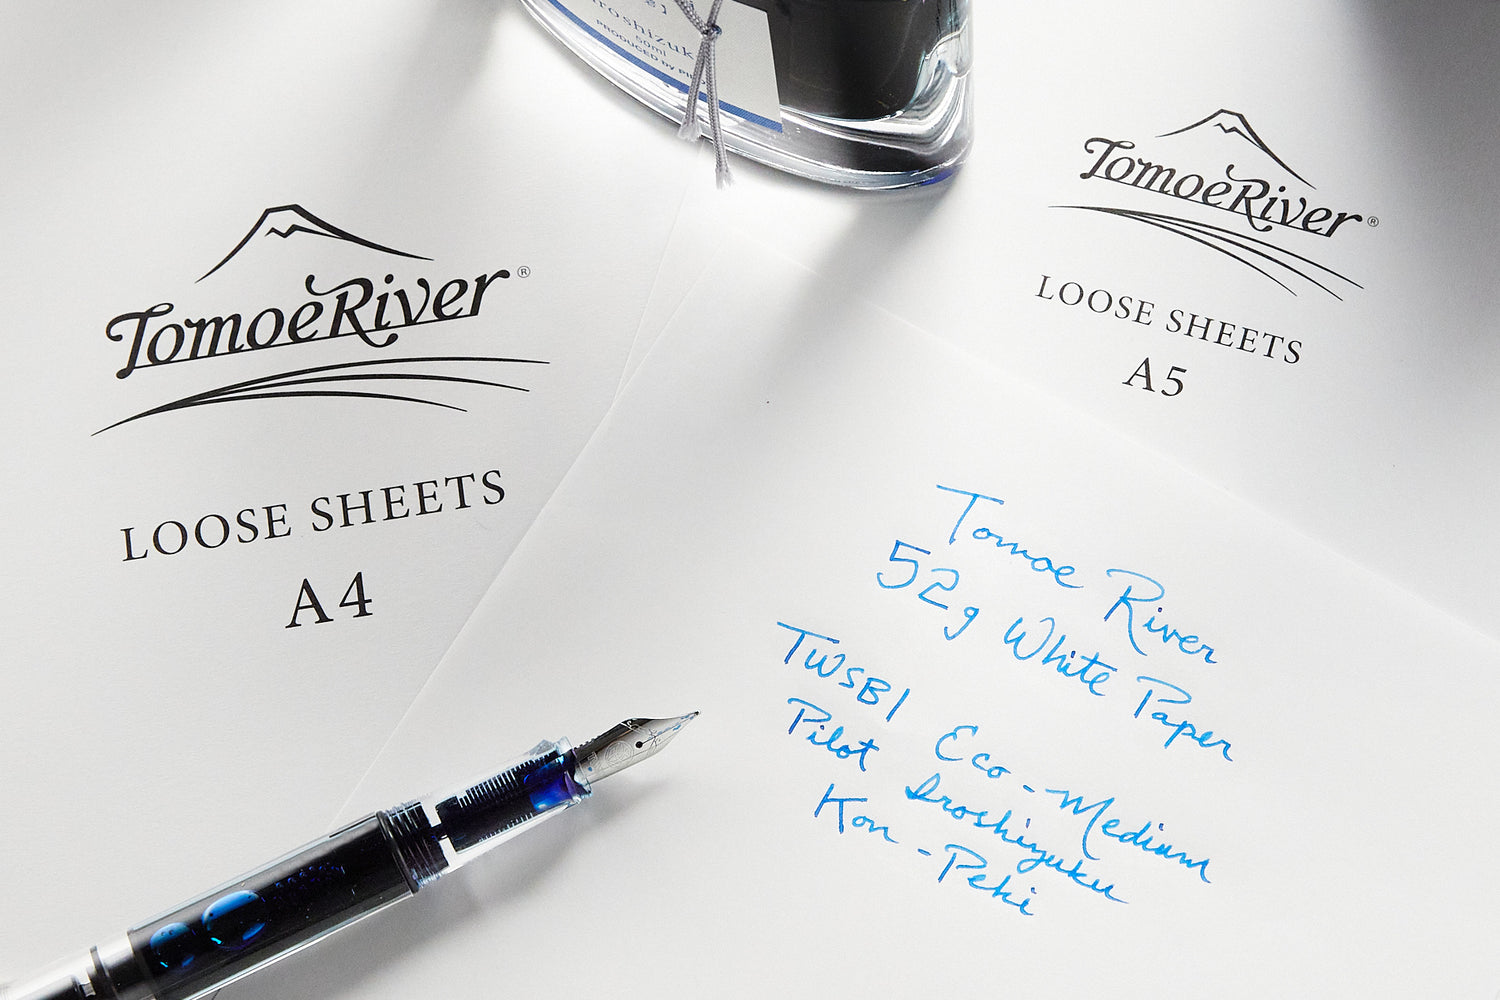 50ml
PRODUCED by
TomoeRiver®
LOOSE SHEETS
A4
TomoeRiver®
LOOSE SHEETS
A5
Tomoe River
52g White Paper
TWSBI Eco-Medium
Pilot Iroshizuku
Kon-Peki